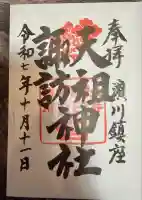 奉拝
瀬川鎮座
天祖神社
諏訪神社
令和七年十月十一日